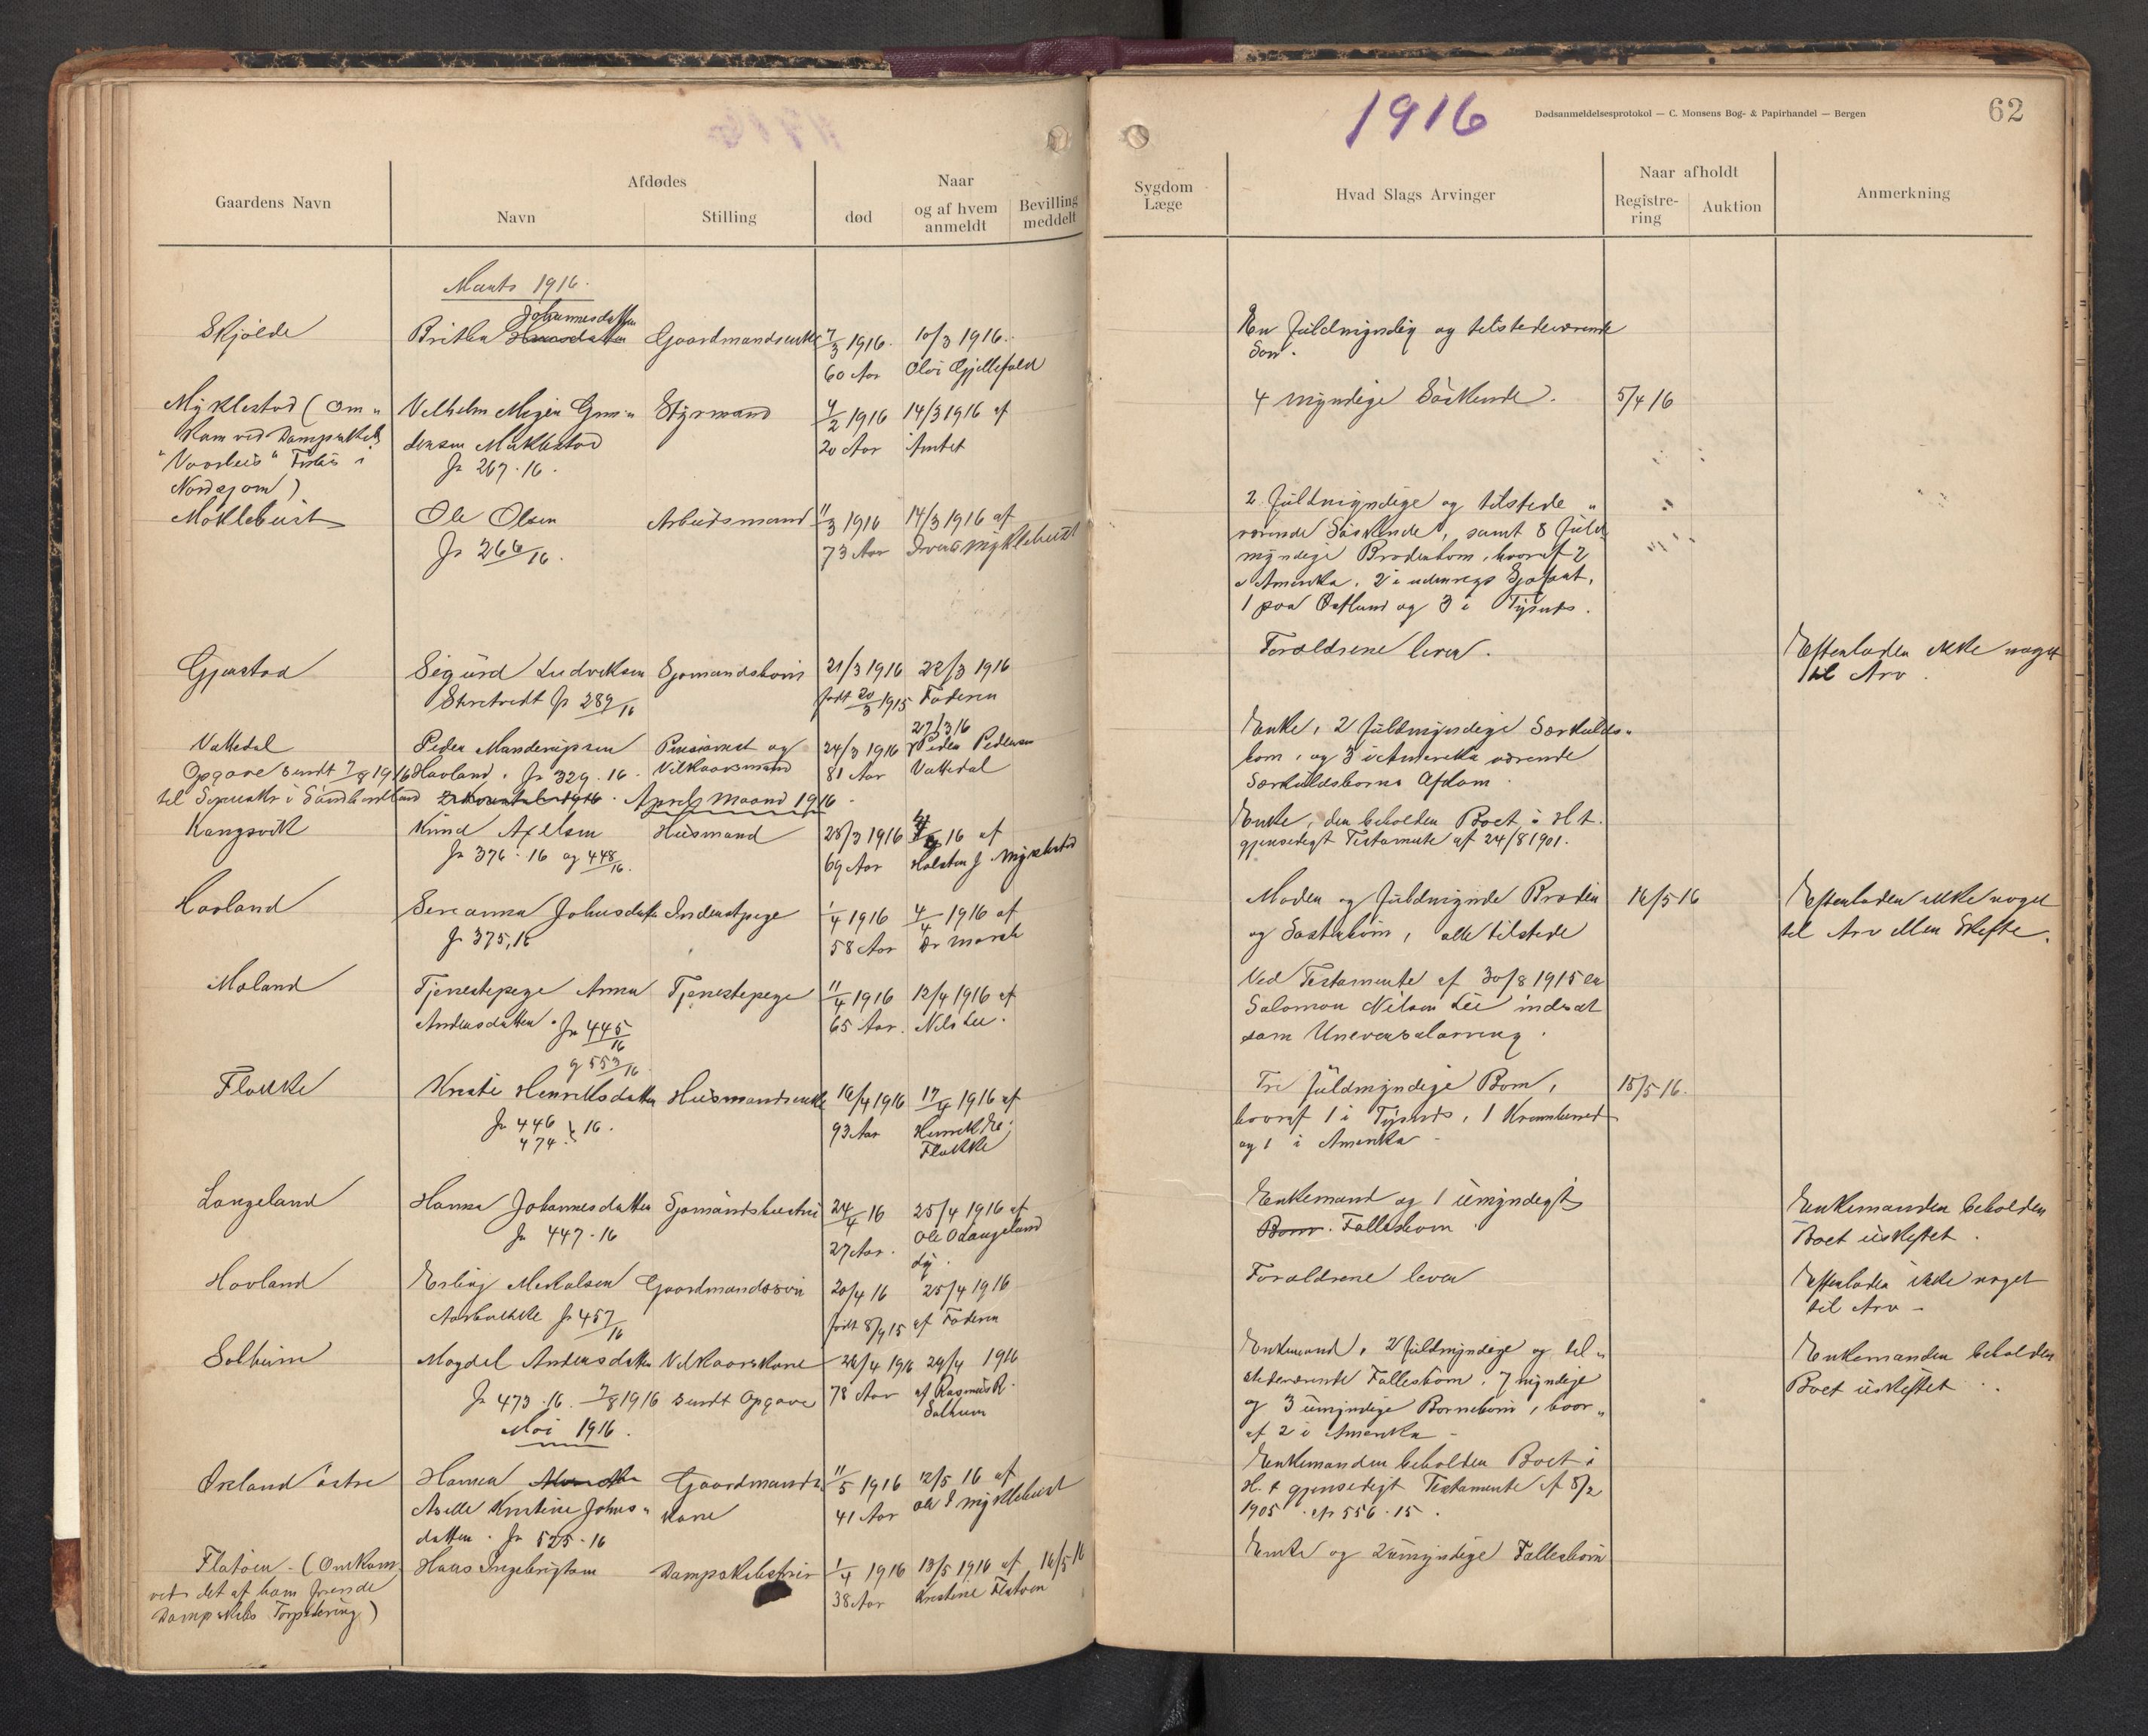 1916
Dødsanmeldelsesprotokol — C. Monsens Bog- & Papirhandel — Bergen
62
Gaardens Navn
Afdødes
Navn
Stilling
død
Naar
og af hvem
anmeldt
Bevilling
meddelt
Sygdom
Læge
Hvad Slags Arvinger
Naar afholdt
Registre-
ring
Auktion
Anmerkning
Marts 1916.
Johannesdatter
Skjelde Britha Gaardmandsenke 7/3 1916. 10/3 1916.
60 Aar
En fuldmyndig og tilstedeværende
Søn.
Myklestad (Om-
kom ved Dampskibet
Nordsjøen)
Vilhelm Styrmand 4/2 1916 14/3 1916 af
Myklestad 20 Aar Amtet
Jr 267.16.
4 myndige Søskende. 5/4 16
Møklebust Ole Olsen Arbeidsmand 11/3 1916 14/3 1916 af
Jr 266/16. 73 Aar Myklebust
2 fuldmyndige og tilstede-
værende Søskende, samt 8 fuld-
myndige Broderbørn, hvoraf 2
i Amerika, 2 i udenrigs Sjøfart,
1 paa Østland og 3 i Tysnes.
Gjerstad Sigurd Ludviksen Sjømandsbarn 21/3 1916 22/3 1916
Jr 289/16 født 20/3 1915 Faderen
Forældrene lever.
Efterlader ikke noget
til Arv.
Vattedal Peder Pensionist og 24/3 1916 27/3 16
Peder Pedersen
Opgave sendt 7/8 1916 Havland. Jr 329.16. Vilkaarsmand 81 Aar Vattedal
Enke, 2 fuldmyndige Særkulds-
børn, og 3 i Amerika værende
Særkuldsbørns Afkom.
April Maaned 1916.
Kangsvik Knud Axelsen Husmand 28/3 1916 16 af
Jr 376.16 og 448/16. 69 Aar Myklestad
Enke, der beholder Boet i H. t.
gjensidigt Testamente af 24/8 1901.
Havland Serianna Johnsdatter 1/4 1916 4/4 1916 af
Jr 375,16 58 Aar
Moder og fuldmynde Brødre
og Søsterbørn, alle tilstede
16/5 16
Efterlader ikke noget
til Arv eller Skifte.
Møland Tjenestepige Anna Tjenestepige 11/4 1916 12/4 1916 af
Andersdatter. Jr 445/16 65 Aar. Nils Lie.
og 553/16
Ved Testamente af 30/8 1915 er
Salomon Nilsen Lie indsat
som Universalarving.
Flakke Kristi Henriksdatter Husmandsenke 16/4 1916 17/4 1916 af
Jr 446 16. 93 Aar
474. Flakke
Tre fuldmyndige Børn,
hvoraf 1 i Tysnes, 1 Kvinnherred
og 1 i Amerika
15/5 16.
Langeland Hanna Johannesdatter Sjømandshustru 24/4 16 25/4 1916 af
Jr 447.16 27 Aar. Ole O Langeland
Enkemand og 1 umyndigt
Barn. Fællesbarn.
Enkemanden beholder
Boet uskiftet.
Havland Erling Mikalsen Gaardmandssøn 20/4 16 25/4 1916
Jr 457/16 født 8/9 15 af Faderen
Forældrene lever
Efterlader ikke noget
til Arv –
Solheim Magdel Andersdatter Vilkaarskone 26/4 1916 29/4 1916
Jr 473.16. 7/8 1916 sendt Opgave 78 Aar af Rasmus R.
Solheim
Enkemand, 2 fuldmyndige og til-
stedeværende Fællesbørn, 7 myndige
og 3 umyndige Barnebørn, hvor-
af 2 i Amerika –
Enkemanden beholder
Boet uskiftet.
Mai 1916.
Øreland østre Gaardmands- 11/5 1916 12/5 16 af
Kristine Johns- kone 41 Aar Myklebust
datter. Jr 525.16
Enkemanden beholder Boet i
H. t gjensidigt Testamente af 8/2
1905. 556.15.
Flatøen. (Omkom
ved det af ham førende
Dampskibs Torpedering)
Hans Ingebrigtsen 1/4 1916 13/5 1916 af 16/5 16
38 Aar Kristine Flatøen
Enke og 2 umyndige Fællesbørn